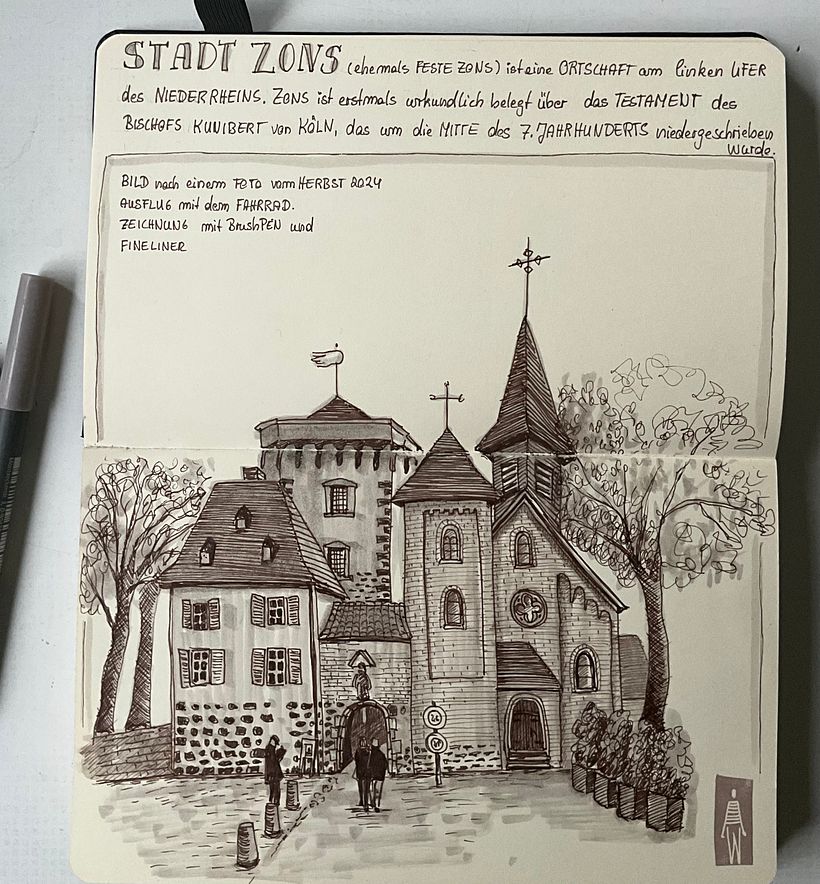 STADT ZONS (ehemals FESTE ZONS) ist eine ORTSCHAFT am linken UFER
des NIEDERRHEINS. ZONS ist erstmals urkundlich belegt über das TESTAMENT des
BISCHOFS KUNIBERT von KÖLN, das um die MITTE des 7. JAHRHUNDERTS niedergeschrieben
wurde.
BILD nach einem FOTO vom HERBST 2024
AUSFLUG mit dem FAHRRAD.
ZEICHNUNG mit BrushPEN und
FINELINER
W